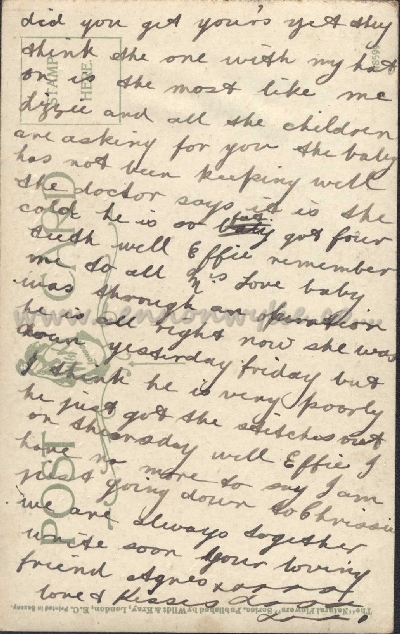 did you get your's yet they
think the one with my hat
on is the most like me
Lizzie and all the children
are asking for you the baby
has not been keeping well
the doctor says it is the
cold he is so got four
teeth well Effie remember
me to all Love baby
was through an operation
he is all right now she was
down yesterday friday but
I think he is very poorly
he just got the stitches out
on thursday well Effie I
have no more to say I am
just going down to Chrissie
we are always together
write soon your loving
friend Agnes xxxxx
love & Kisses
POST CARD
STAMP
HERE.
The "Natural Flowers" Series. Published by Wildt & Kray, London, E.C. Printed in Saxony.